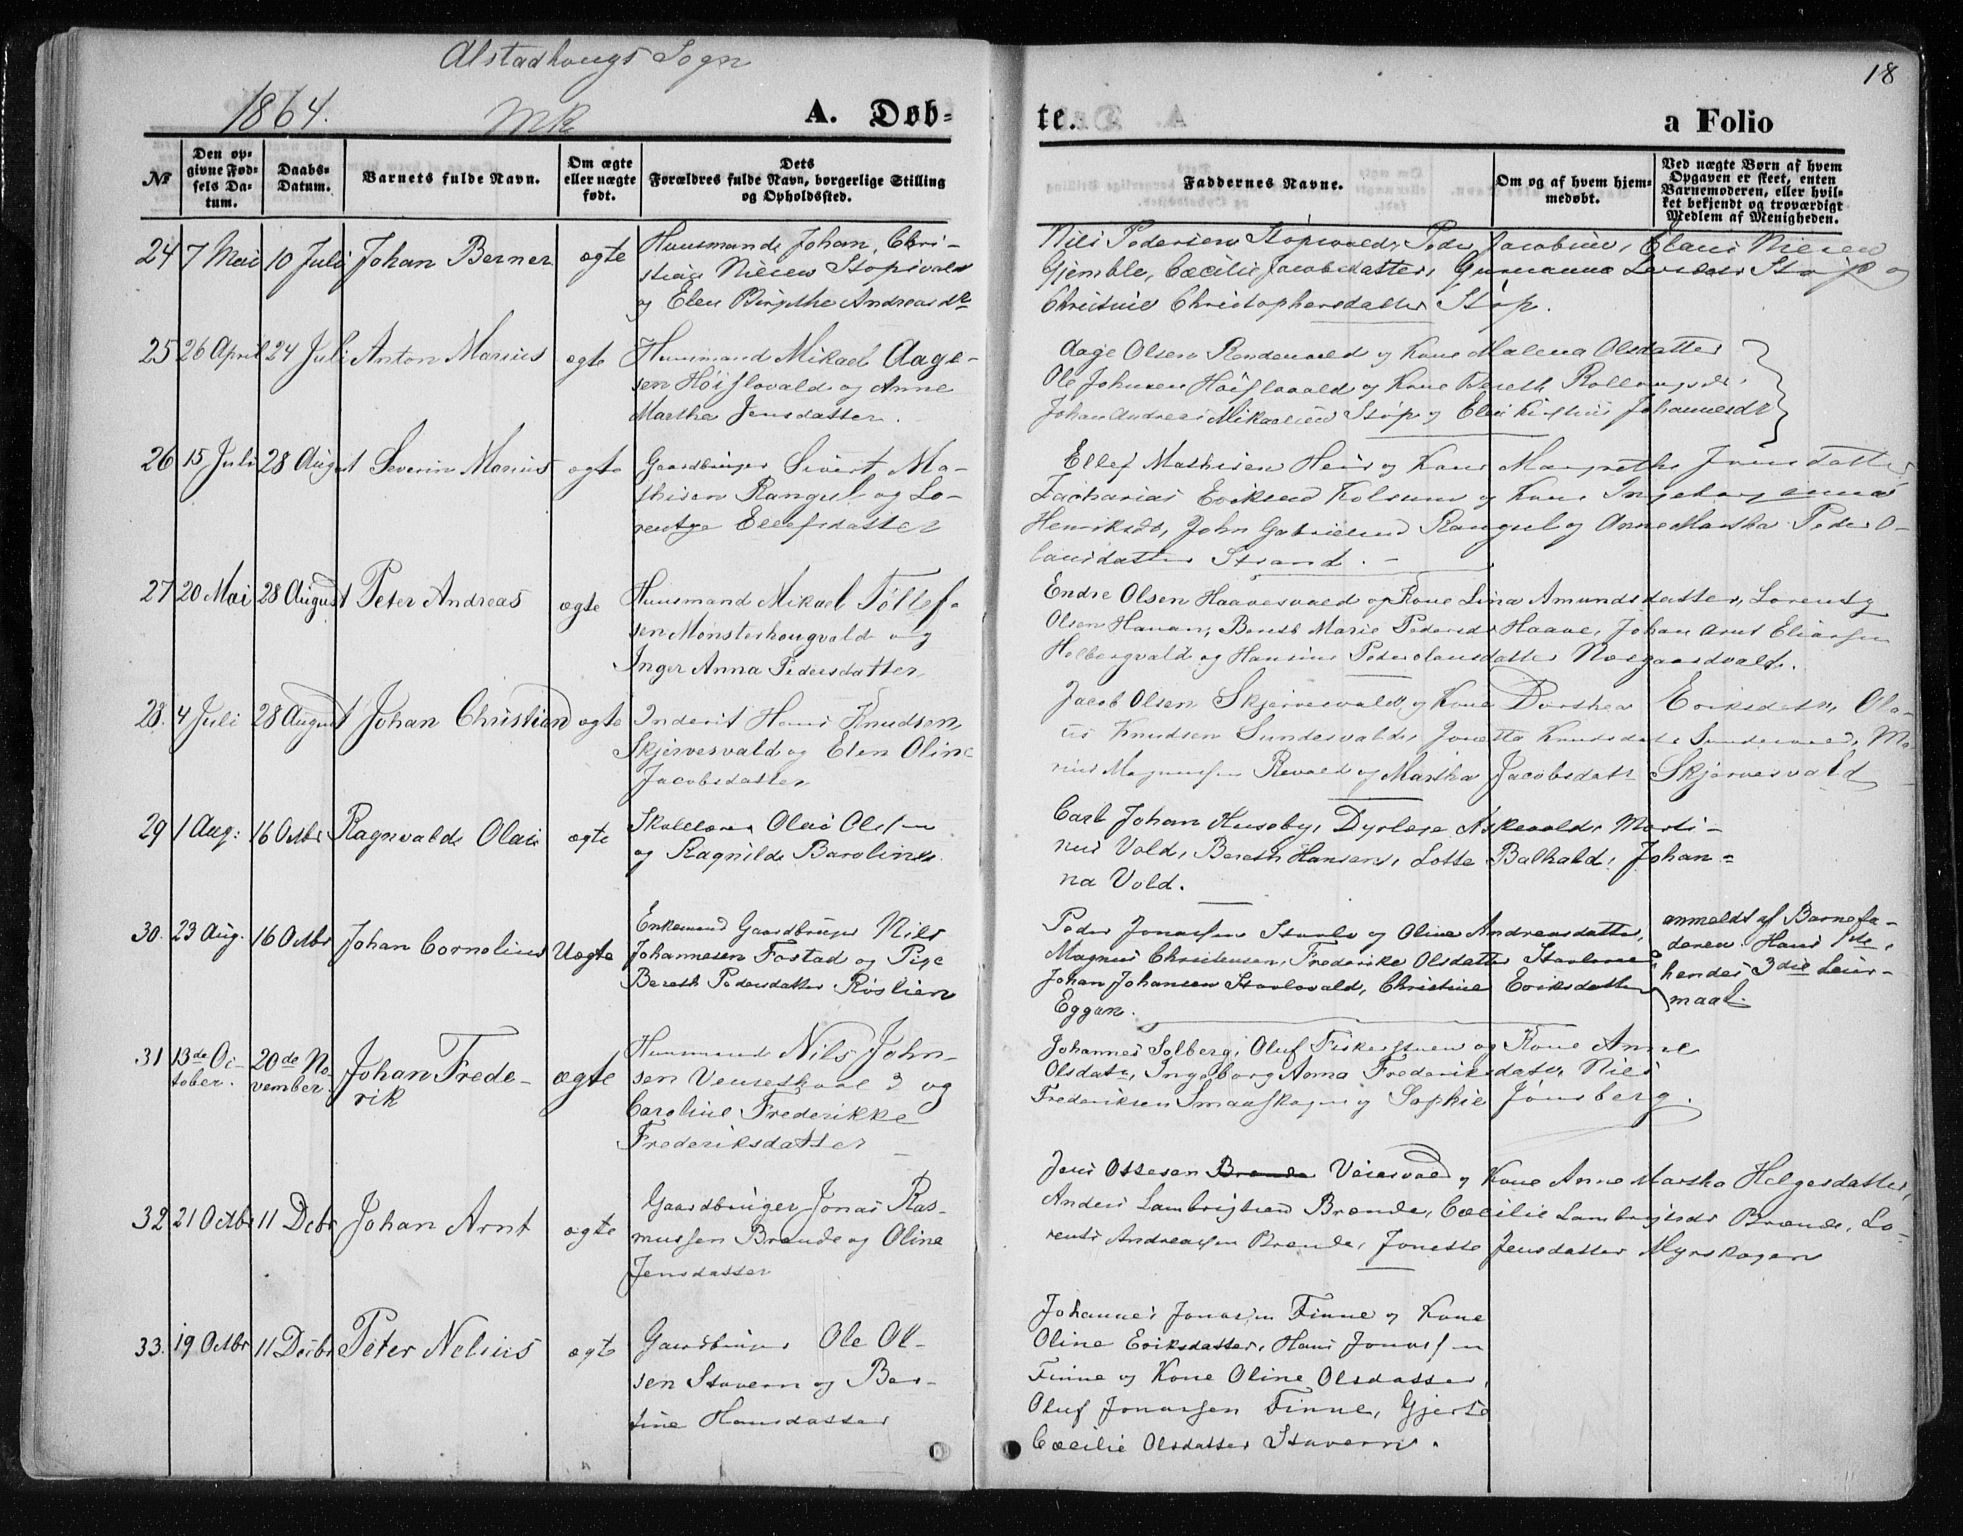 Alstadhougs Sogn
18
1864.
Mk
A. Døb-
te.
a Folio
No
Den op-
givne Fød-
sels Da-
tum.
Daabs-
Datum.
Barnets fulde Navn.
Om ægte
eller nægte
født.
Dets
Forældres fulde Navn, borgerlige Stilling
og Opholdssted.
Faddernes Navne.
Om og af hvem hjem-
medøbt.
Ved nægte Børn af hvem
Opgaven er skeet, enten
Barnemoderen, eller hvil-
ket bekjendt og troværdigt
Medlem af Menigheden.
24 7 Mai 10 Juli Johan Berner ægte
Huusmand Johan Chri-
stian
og Elen Birgithe Andreasdr
Nils Pedersen Peder Jacobsen,
Gjemble, Cæcilie Jacobsdatter, og
Christine Christophersdatter Støp.
25 26 April 24 Juli Anton Marius ægte
Huusmand Mikael Aage-
sen Høislovald og Anne
Martha Jensdatter.
Aage Olsen og Kone Malena Olsdatter
Ole Johnsen Høislovald og Kone Bereth
Johan Andreas Mikaelsen Støp og Johannesdr
26 15 Juli 28 August Severin Marius ægte
Gaardbruger Sivert Ma-
thisen Rangul og Lo-
rentse Ellefsdatter
Ellef Mathisen og Kone Margrethe Jonsdatter,
Zacharias Eriksen og Kone Ingeborg Anna
Henriksdr, John Gabrielsen Rangul og Anne Martha Peder O-
lausdatter Strand.
27 20 Mai 28 August Peter Andreas ægte
Huusmand Mikael Tøllef-
sen Mønsterhougvald og
Inger Anna Pedersdatter
Endre Olsen Haavesvald og Kone Lina Amundsdatter, Lorents
Olsen Hanan, Bereth Marie Pedersdr Haave, Johan Arnt Eliassen
Holbergvald og Hansine Pederolausdatter Norgaardvald.
28. 4 Juli 28 August Johan Christian ægte
Inderst Hans Knudsen,
Skjervesvald og Elen Oline
Jacobsdatter
Jacob Olsen Skjervesvald og Kone Dorthea Eriksdatr, Ola-
us Knudsen Sundesvald, Jonetta Knudsdatr Ma-
nus Magnussen og Martha Jacobsdatr Skjervesvald
29 1 Aug: 16 Octbr Ragnvalde Olai ægte
Skolelærer Olai Olsen
og Ragnilde Baroline.
Carl Johan Huseby, Dyrlæge Askevold, Marti-
nus Vold, Bereth Hansen, Lotte Balhald, Johan-
na Vold.
30. 23 Aug. 16 Octbr Johan Cornelius Uægte
Enkemand Gaardbruger Nils
Johannesen Fostad og Pige
Bereth Pedersdatter Røslien
Peder Jonassen og Oline Andreasdatter,
Magnus Christensen, Frederike Olsdatter
Johan Johansen Christine Eriksdatter
Eggan.
anmeldt af Barnefa-
deren. Hans 1ste,
hendes 3die Leier-
maal.
31 13de Oc-
tober. 20de No-
vember. Johan Frede-
rik ægte
Huusmand Nils John-
sen og
Caroline Frederikke
Frederiksdatter
Johannes Solberg, Oluf og Kone Anne
Olsdatr, Ingeborg Anna Frederiksdatr, Nils
Frederiksen Smaaskogen og Sophie Jønsberg.
32. 21 Octbr 11 Debr Johan Arnt ægte
Gaardbruger Jonas Ras-
mussen Brænde og Oline
Jensdatter
Jens Ottesen Brænde Veiesvald og Kone Anne Martha Helgesdatter,
Anders Lambrigtsen Brænde, Cæcilie Lambrigtsdr Brænde, Lo-
rents Andreassen Brænde, Jonette Jensdatter Myrskogen
33. 19 Octbr 11 Decbr Peter Nelius ægte
Gaardbruger Ole Ol-
sen Stavern og Ber-
tine Hansdatter
Johannes Jonassen Finne og Kone
Oline Eriksdatter, Hans Jonassen
Finne og Kone Oline Olsdatter,
Oluf Jonassen Finne,
Cæcilie Olsdatter Stavern.